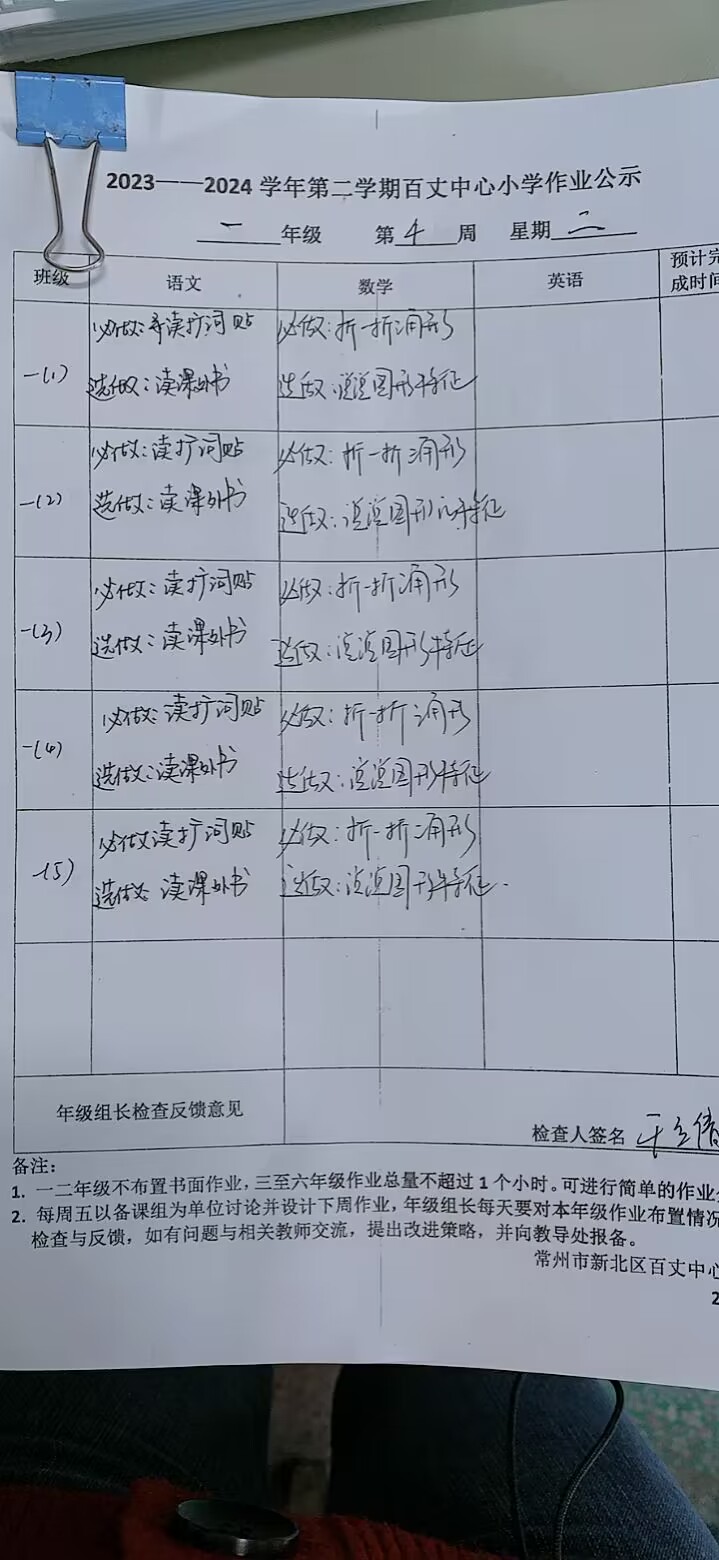 2023——2024 学年第二学期百丈中心小学作业公示
一 年级 第 4 周 星期 二
班级 语文 数学 英语 预计完
成时间
一(1) 必做:读扩词贴 必做:折一折三角形
选做:读课外书 选做:说说图形特征
一(2) 必做:读扩词贴 必做:折一折三角形
选做:读课外书 选做:说说图形特征
一(3) 必做:读扩词贴 必做:折一折三角形
选做:读课外书 选做:说说图形特征
一(4) 必做:读扩词贴 必做:折一折三角形
选做:读课外书 选做:说说图形特征
一(5) 必做:读扩词贴 必做:折一折三角形
选做:读课外书 选做:说说图形特征.
年级组长检查反馈意见
检查人签名
备注:
1. 一二年级不布置书面作业,三至六年级作业总量不超过 1 个小时。可进行简单的作业
2. 每周五以备课组为单位讨论并设计下周作业,年级组长每天要对本年级作业布置情况
检查与反馈,如有问题与相关教师交流,提出改进策略,并向教导处报备。
常州市新北区百丈中心
2